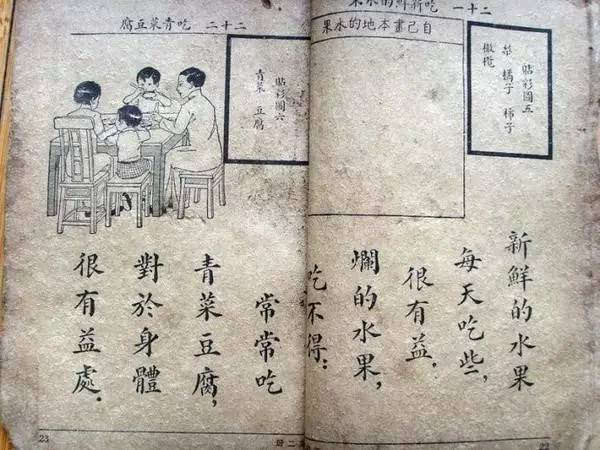 二十一 吃新鮮的水果
貼彩圖五
橘子 柿子
橄欖
自己畫本地的水果
新鮮的水果
每天吃些,
很有益.
爛的水果,
吃不得:
22
二十二 吃青菜豆腐
貼彩圖六
青菜 豆腐
常常吃
青菜豆腐,
對於身體
很有益處.
23